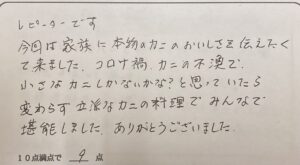 レピーターです
今回は家族に本物のカニのおいしさを伝えたく
て来ました。コロナ禍、カニの不漁で、
小さなカニしかないかな?と思っていたら
変わらず立派なカニの料理でみんなで
堪能しました。ありがとうございました。
10点満点で 9 点